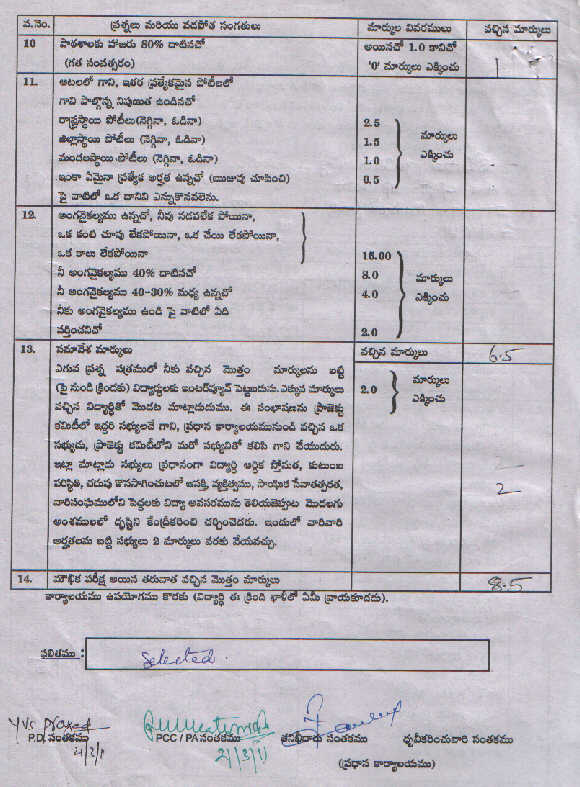 వ.నెం. ప్రశ్నలు మరియు వడపోత సంగతులు మార్కుల వివరములు వచ్చిన మార్కులు
10 పాఠశాలకు హాజరు 80% దాటినచో అయినచో 1.0 కానిచో 1
(గత సంవత్సరం) '0' మార్కులు ఎక్కించు
11. ఆటలలో గాని, ఇతర ప్రత్యేకమైన పోటీలలో
గాని పాల్గొన్న నిపుణత ఉండినచో
రాష్ట్రస్థాయి పోటీలు(నెగ్గినా, ఓడినా) 2.5 మార్కులు
జిల్లాస్థాయి పోటీలు (నెగ్గినా, ఓడినా) 1.5 ఎక్కించు
మండలస్థాయి పోటీలు (నెగ్గినా, ఓడినా) 1.0
ఇంకా ఏమైనా ప్రత్యేక అర్హత ఉన్నచో (ఋజువు చూపించి) 0.5
పై వాటిలో ఒక దానిని ఎన్నుకొనవలెను.
12. అంగవైకల్యము ఉన్నచో, నీవు నడవలేక పోయినా,
ఒక కంటి చూపు లేకపోయినా, ఒక చేయి లేకపోయినా,
ఒక కాలు లేకపోయినా 16.00
నీ అంగవైకల్యము 40% దాటినచో 8.0 మార్కులు
నీ అంగవైకల్యము 40-30% మధ్య ఉన్నచో 4.0 ఎక్కించు
నీకు అంగవైకల్యము ఉండి పై వాటిలో ఏది
వర్తించనిచో 2.0
13. సమావేశ మార్కులు వచ్చిన మార్కులు 6.5
ఎగువ ప్రశ్న పత్రములో నీకు వచ్చిన మొత్తం మార్కులను బట్టి
(పై నుండి క్రిందకు) విద్యార్థులకు ఇంటర్వ్యూవ్ పెట్టబడును. ఎక్కువ మార్కులు 2.0 మార్కులు ఎక్కించు
వచ్చిన విద్యార్థితో మొదట మాట్లాడుదుము. ఈ సంభాషణను ప్రాజెక్టు
కమిటీలో ఇద్దరి సభ్యులచే గాని, ప్రధాన కార్యాలయమునుండి వచ్చిన ఒక
సభ్యుడు, ప్రాజెక్టు కమిటీలోని మరో సభ్యునితో కలిసి గాని చేయుదురు.
ఇట్లా మాట్లాడు సభ్యులు ప్రధానంగా విద్యార్థి ఆర్థిక స్తోమత, కుటుంబ
పరిస్థితి, చదువు కొనసాగించుటలో ఆసక్తి, వ్యక్తిత్వము, సాంఘిక సేవాతత్పరత, 2
వారిసంఘములోని పెద్దలకు విద్యా అవసరమును తెలియజెప్పుట మొదలగు
అంశములలో దృష్టిని కేంద్రీకరించి చర్చించెదరు. ఇందులో వారివారి
అర్హతలను బట్టి సభ్యులు 2 మార్కులు వరకు వేయవచ్చు.
14. మౌఖిక పరీక్ష అయిన తరువాత వచ్చిన మొత్తం మార్కులు 8.5
కార్యాలయము ఉపయోగము కొరకు (విద్యార్థి ఈ క్రింది ఖాళీలో ఏమీ వ్రాయకూడదు).
ఫలితము : Selected.
YVS Prasad
P.D. సంతకము PCC / PA సంతకము జనిధీదారు సంతకము ధృవీకరించువారి సంతకము
21/3/11
(ప్రధాన కార్యాలయము)